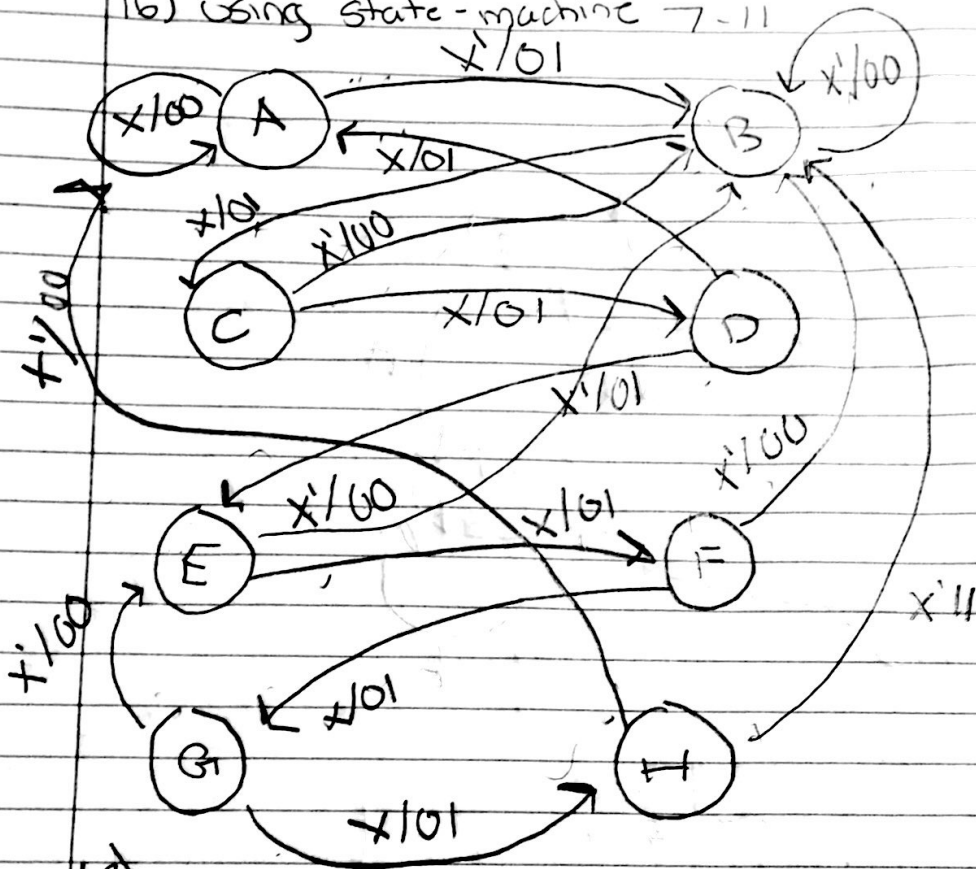 1b) Using state-machine 7-11
X'/01
X'/00
X/00
A
B
X/01
X/01
X'/00
C
X/01
D
X'/00
X'/01
X'/00
X'/00
X/01
E
F
X'/00
X'11
X/01
G
H
X/01